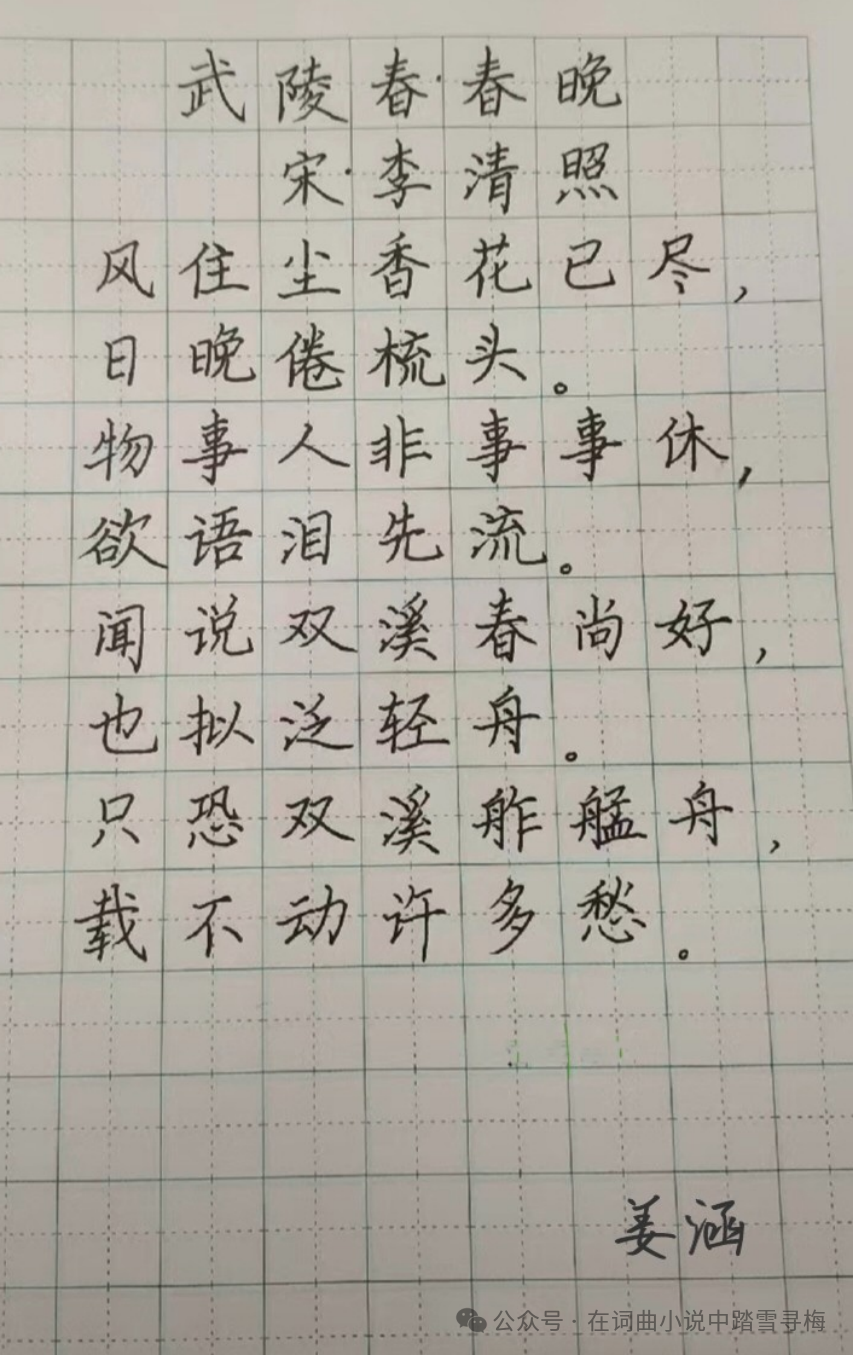 武陵春·春晚
宋·李清照
风住尘香花已尽，
日晚倦梳头。
物事人非事事休，
欲语泪先流。
闻说双溪春尚好，
也拟泛轻舟。
只恐双溪舴艋舟，
载不动许多愁。
姜涵
公众号·在词曲小说中踏雪寻梅